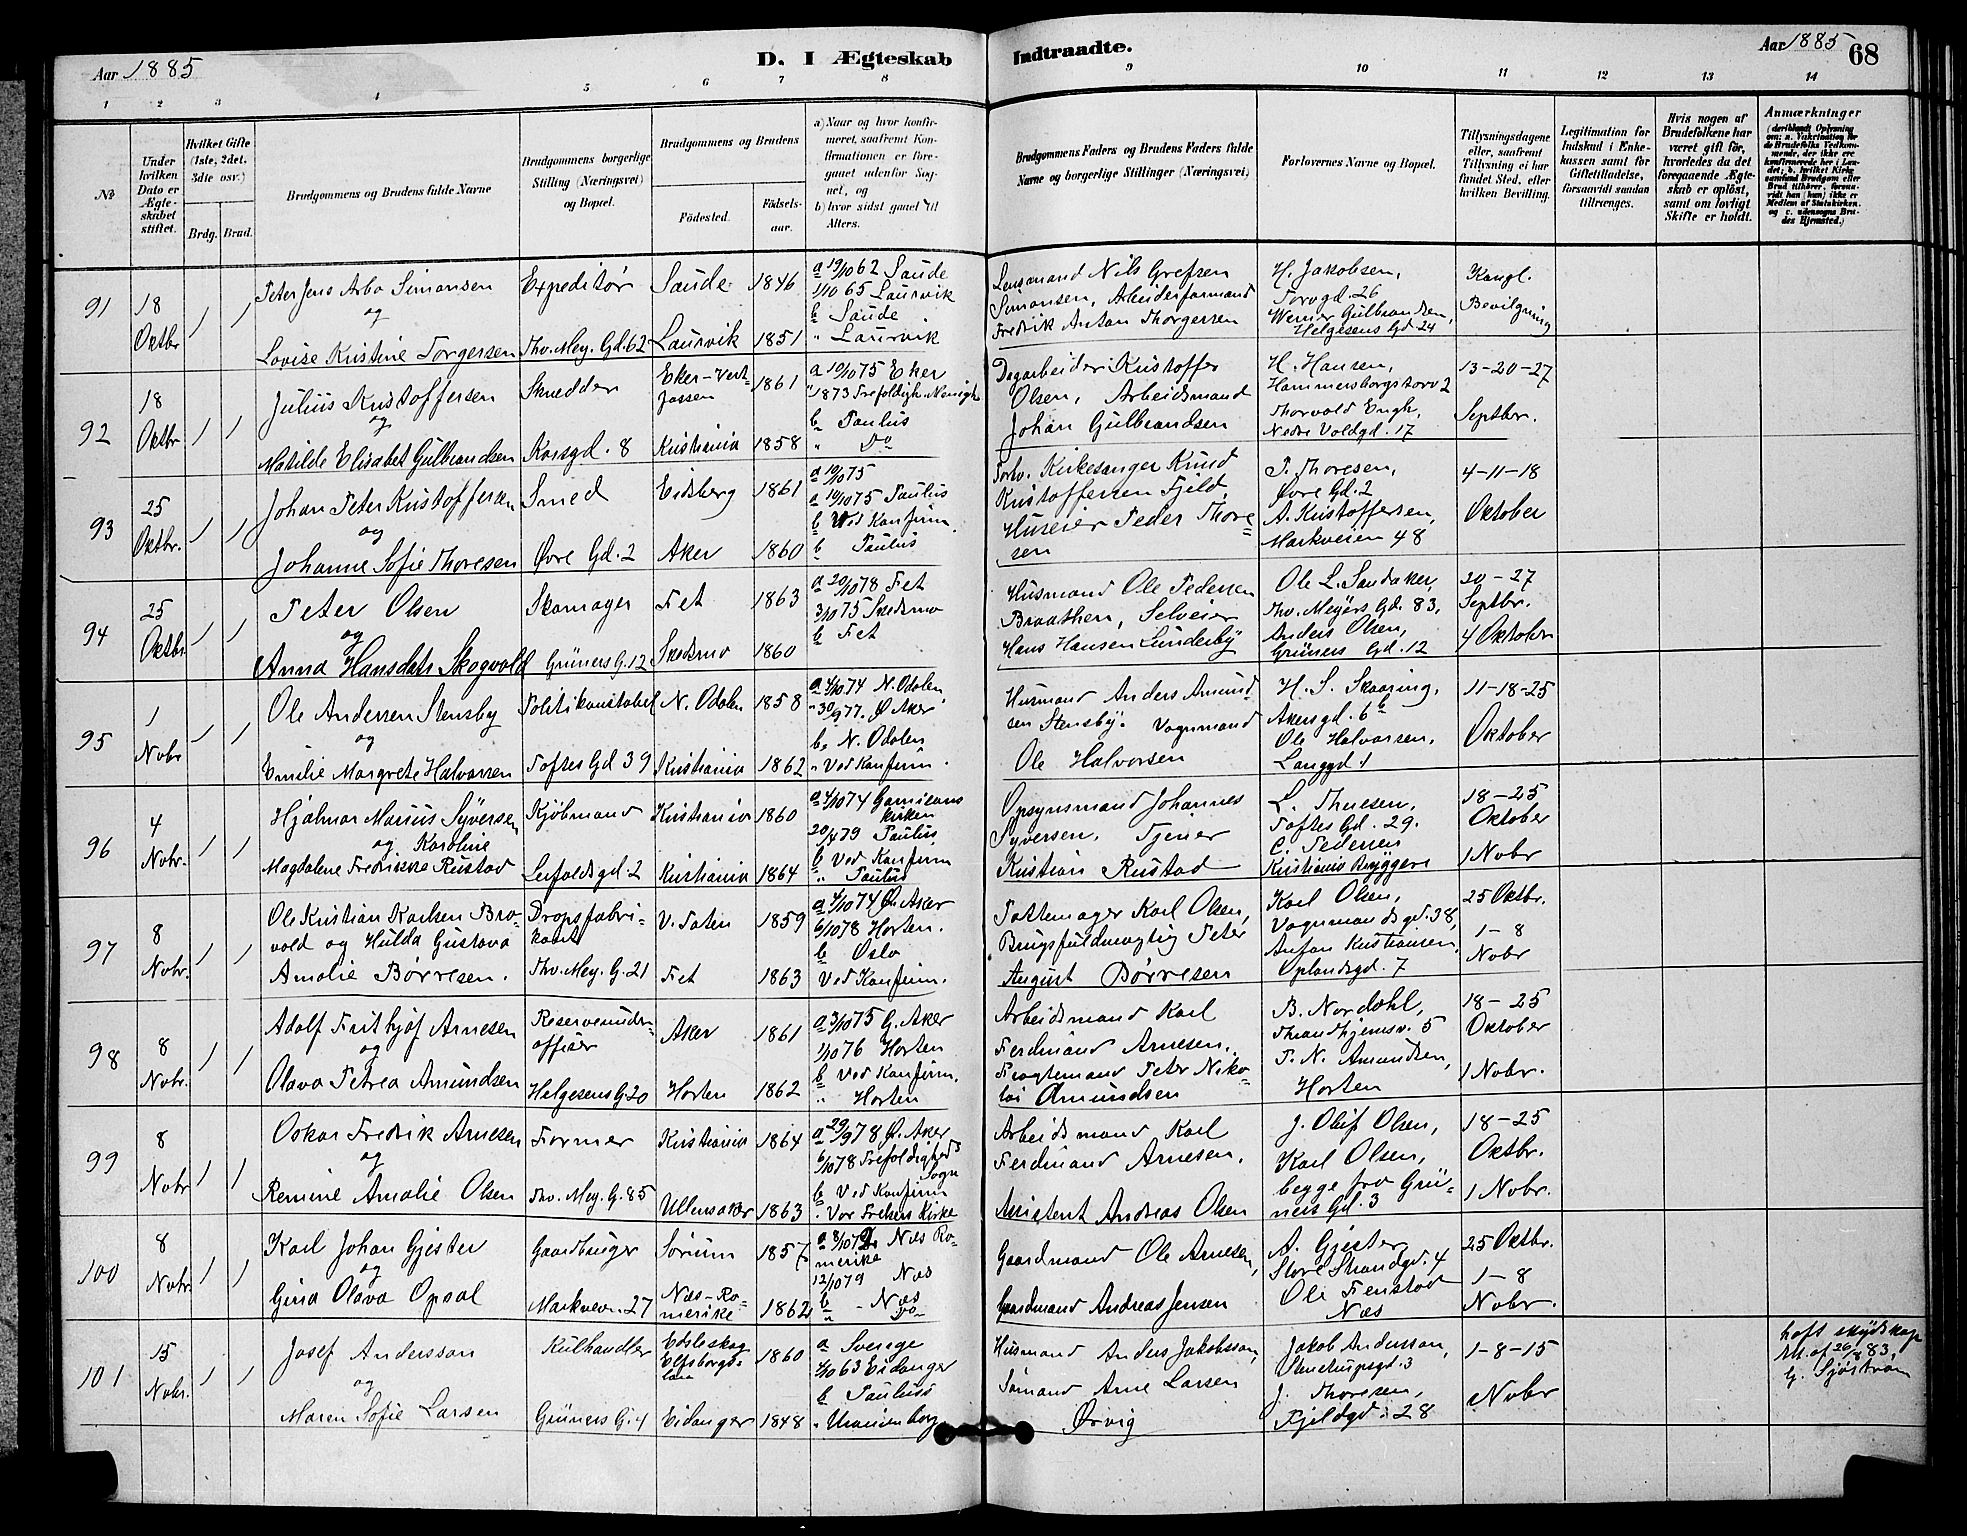 Aar 1885
D. I Ægteskab
Indtraadte.
Aar 1885
68
1 2 3 4 5 6 7 8 9 10 11 12 13 14
№
Under hvilken Dato er Ægteskabet stiftet.
Hvilket Gifte (1ste, 2det, 3die osv.)
Brdg. Brud.
Brudgommens og Brudens fulde Navne
Brudgommens borgerlige Stilling (Næringsvei) og Bopæl.
Brudgommens og Brudens
Fødested.
Fødselsaar.
a) Naar og hvor konfirmeret, saafremt Konfirmationen er foregaaet udenfor Sognet, og
b) hvor sidst gaaet til Alters.
Brudgommens Faders og Brudens Faders fulde Navne og borgerlige Stillinger (Næringsvei)
Forlovernes Navne og Bopæl.
Tillysningsdagene eller, saafremt Tillysning ei har fundet Sted, efter hvilken Bevilling.
Legitimation for Indskud i Enkekassen samt for Giftetilladelse, forsaavidt saadan tiltrænges.
Hvis nogen af Brudefolkene har været gift før, hvorledes da det foregaaende Ægteskab er opløst, samt om lovligt Skifte er holdt.
Anmærkninger
91
18 Oktbr
1 1
Peter Jens Arbo Simonsen
og
Lovise Kristine Torgersen
Expeditør
Thv. Mey. Gd. 62
Saude 1846
Laurvik 1851
a 19/10 62 Saude
1/10 65 Laurvik
b Saude
" Laurvik
Lensmand Nils Grefsen
Simonsen, Arbeiderformand
Fredrik Anton Thorgersen
H. Jakobsen,
Torvgd. 26
Werner Gulbrandsen,
Helgesens Gd. 24
Kongl.
Bevilgning
92
18 Oktbr
1 1
Julius Kristoffersen
og
Matilde Elisabet Gulbrandsen
Skrædder
Korsgd. 8
Eker-Vestfossen 1861
Kristiania 1858
a 10/10 75 Eker
" 1873 Trefoldigh. Menigh.
b Paulus
" Do
Dagarbeider Kristoffer
Olsen, Arbeidsmand
Johan Gulbrandsen
H. Hansen,
Hammersborgstorv 2
Thorvald Engh,
Nedre Voldgd. 17
13-20-27
Septbr.
93
25 Oktbr.
1 1
Johan Peter Kristoffersen
og
Johanne Sofie Thoresen
Smed
Øvre Gd. 2
Eidsberg 1861
Aker 1860
a 10/10 75
a 10/10 75 Paulus
b Ved Konfirm.
b Paulus
Forhv. Kirkesanger Knud
Kristoffersen Fjeld,
Huseier Peder Thoresen
P. Thoresen,
Øvre Gd. 2
A. Kristoffersen,
Markveien 48
4-11-18
Oktober
94
25 Oktbr.
1 1
Peter Olsen
og
Anna Hansdatr Skogvold
Skomager
Grüners G. 12
Fet 1863
Skedsmo 1860
a 20/10 78 Fet
3/10 75 Skedsmo
b Fet
Husmand Ole Pedersen
Braathen, Selveier
Hans Hansen Lunderby
Ole L. Sandaker,
Thv. Meyers Gd. 83,
Anders Olsen,
Grüners Gd. 12
20-27
Septbr.
4 Oktober
95
1 Nobr
1 1
Ole Andersen Stensby
og
Emilie Margrete Halvorsen
Politikonstabel
Toftes Gd 39
N. Odalen 1858
Kristiania 1862
a 4/10 74 N. Odalen
" 30/9 77. Ø. Aker
b. N. Odalen
" Ved Konfirm.
Husmand Anders Amundsen Stensby. Vognmand
Ole Halvorsen
H. S. Skaaring,
Akersgd. 6 b
Ole Halvorsen,
Langgd. 1
11-18-25
Oktober
96
4 Nobr.
1 1
Hjalmar Marius Syversen
og Karoline
Magdalene Fredrikke Rustad
Kjøbmand
Leufoldsgd. 2
Kristiania 1860
Kristiania 1864
a 4/10 74 Garnisons
kirken
20/4 79 Paulus
b Ved Konfirm
" Paulus
Opsynsmand Johannes
Syversen, Tjener
Kristian Rustad
L. Thuesen,
Toftes Gd. 29.
C. Pedersen
Kristiania Bryggeri
18-25
Oktober
1 Nobr
97
8 Nobr.
1 1
Ole Kristian Karlsen Bravold og Hulda Gustava
Amalie Børresen.
Dropsfabrikant
Thv. Mey. G. 21
V. Toten 1859
Fet 1863
a 4/10 74 Ø. Aker
6/10 78 Horten.
b Oslo
Ved Konfirm.
Pottemager Karl Olsen,
Brugsfuldmægtig Peter
August Børresen
Karl Olsen,
Vognmandsgd. 38,
Anton Kristiansen,
Oplandsgd. 7
25 Oktbr.
1-8
Nobr
98
8 Nobr.
1 1
Adolf Frithjof Arnesen
og
Olava Petrea Amundsen
Reserveunderofficer
Helgesens G. 20
Aker 1861
Horten 1862
a 3/10 75 G. Aker
1/10 76 Horten
b Ved Konfirm.
" Horten
Arbeidsmand Karl
Ferdinand Arnesen.
Fragtemand Peter Nikolai Amundsen
B. Nordahl,
Thrandhjemsv. 5
P. N. Amundsen,
Horten
18-25
Oktober
1 Nobr.
99
8 Nobr
1 1
Oskar Fredrik Arnesen
og
Remine Amalie Olsen
Former
Thv. Mey. G. 85
Kristiania 1864
Ullensaker 1863
a 29/9 78 Ø. Aker
6/10 78 Trefoldigheds
Sogn
b Ved Konfirm
" Vor Frelsers Kirke
Arbeidsmand Karl
Ferdinand Arnesen.
Assistent Andreas Olsen
J. Oluf Olsen,
Karl Olsen,
begge fra Grüners Gd. 3
18-25
Oktbr.
1 Nobr.
100
8 Nobr.
1 1
Karl Johan Gjester
og
Gina Olava Opsal
Gaardbruger
Markveien. 27
Sørum 1857
Næs-Romerike 1862
a 8/10 72 Næs Romerike
12/10 79 Næs
b - Næs
" Do
Gaardmand Ole Arnesen,
Gaardmand Andreas Jensen
A. Gjester,
Store Strandgd. 4
Ole Fenstad
Næs
25 Oktbr.
1-8
Nobr.
101
15 Nobr.
1 1
Josef Andersson
og
Maren Sofie Larsen
Kulhandler
Grüners G. 4
Edsleskog
Elfsborgs
län 1860
Eidanger 1848
a Sverige
4/10 63 Eidanger
b Paulus
" Uranienborg
Husmand Anders Jakobsson,
Sømand Arne Larsen
Ørvig
Jakob Andersson,
Stenstrupsgd. 3
J. Thoresen,
Fjeldgd. 28
1-8-15
Nobr
haft skydskop
Att. af 26/8 83,
G. Sjöström